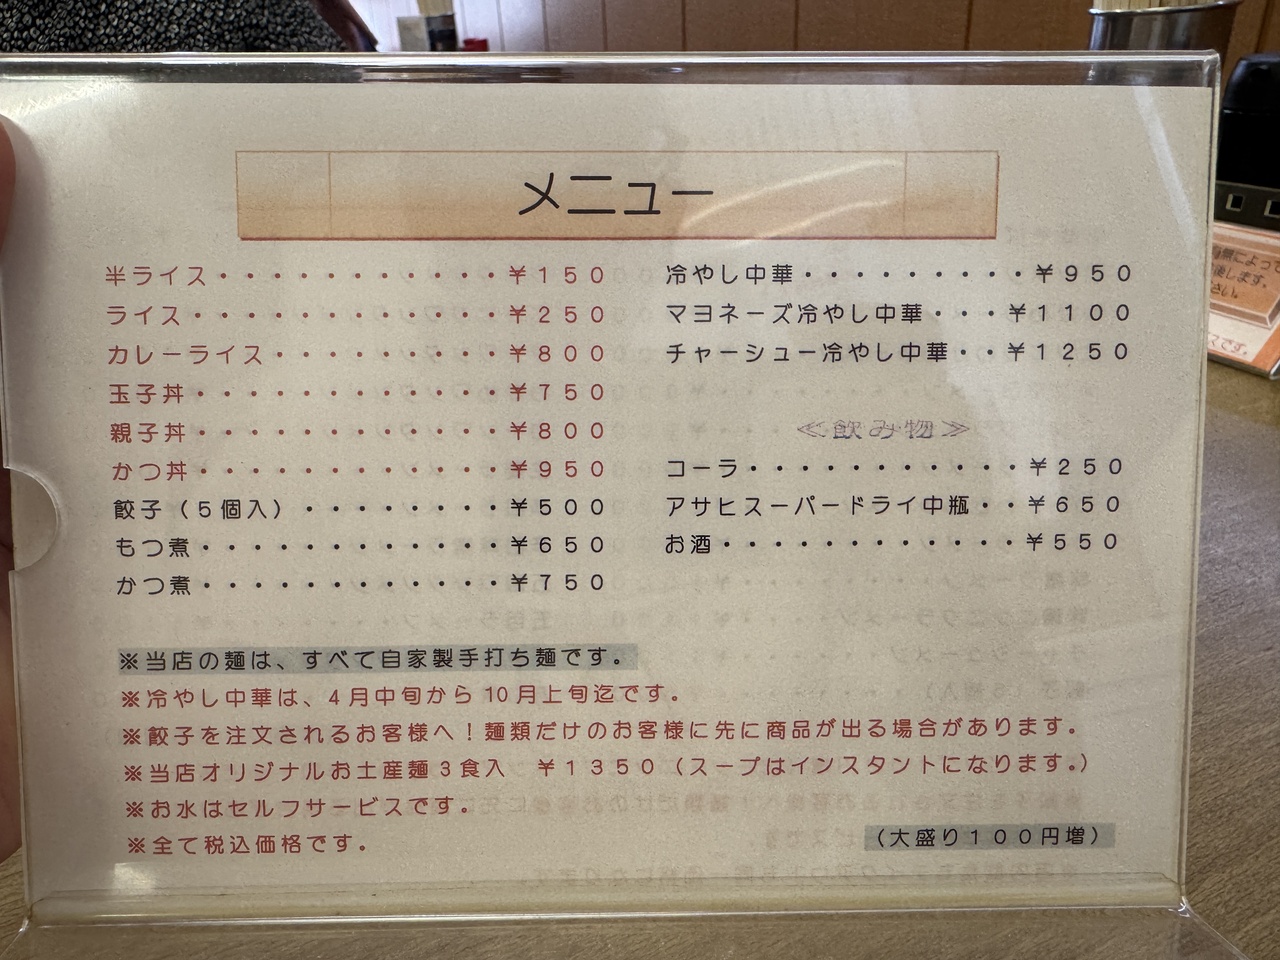 メニュー
半ライス・・・・・・・・・・・￥１５０
ライス・・・・・・・・・・・・￥２５０
カレーライス・・・・・・・・・￥８００
玉子丼・・・・・・・・・・・・￥７５０
親子丼・・・・・・・・・・・・￥８００
かつ丼・・・・・・・・・・・・￥９５０
餃子（５個入）・・・・・・・・￥５００
もつ煮・・・・・・・・・・・・￥６５０
かつ煮・・・・・・・・・・・・￥７５０
冷やし中華・・・・・・・・・￥９５０
マヨネーズ冷やし中華・・・￥１１００
チャーシュー冷やし中華・・￥１２５０
≪飲み物≫
コーラ・・・・・・・・・・・￥２５０
アサヒスーパードライ中瓶・・￥６５０
お酒・・・・・・・・・・・・￥５５０
※当店の麺は、すべて自家製手打ち麺です。
※冷やし中華は、４月中旬から10月上旬迄です。
※餃子を注文されるお客様へ！麺類だけのお客様に先に商品が出る場合があります。
※当店オリジナルお土産麺３食入　￥１３５０（スープはインスタントになります。）
※お水はセルフサービスです。
※全て税込価格です。
（大盛り１００円増）
によって
します。
さい。
です。